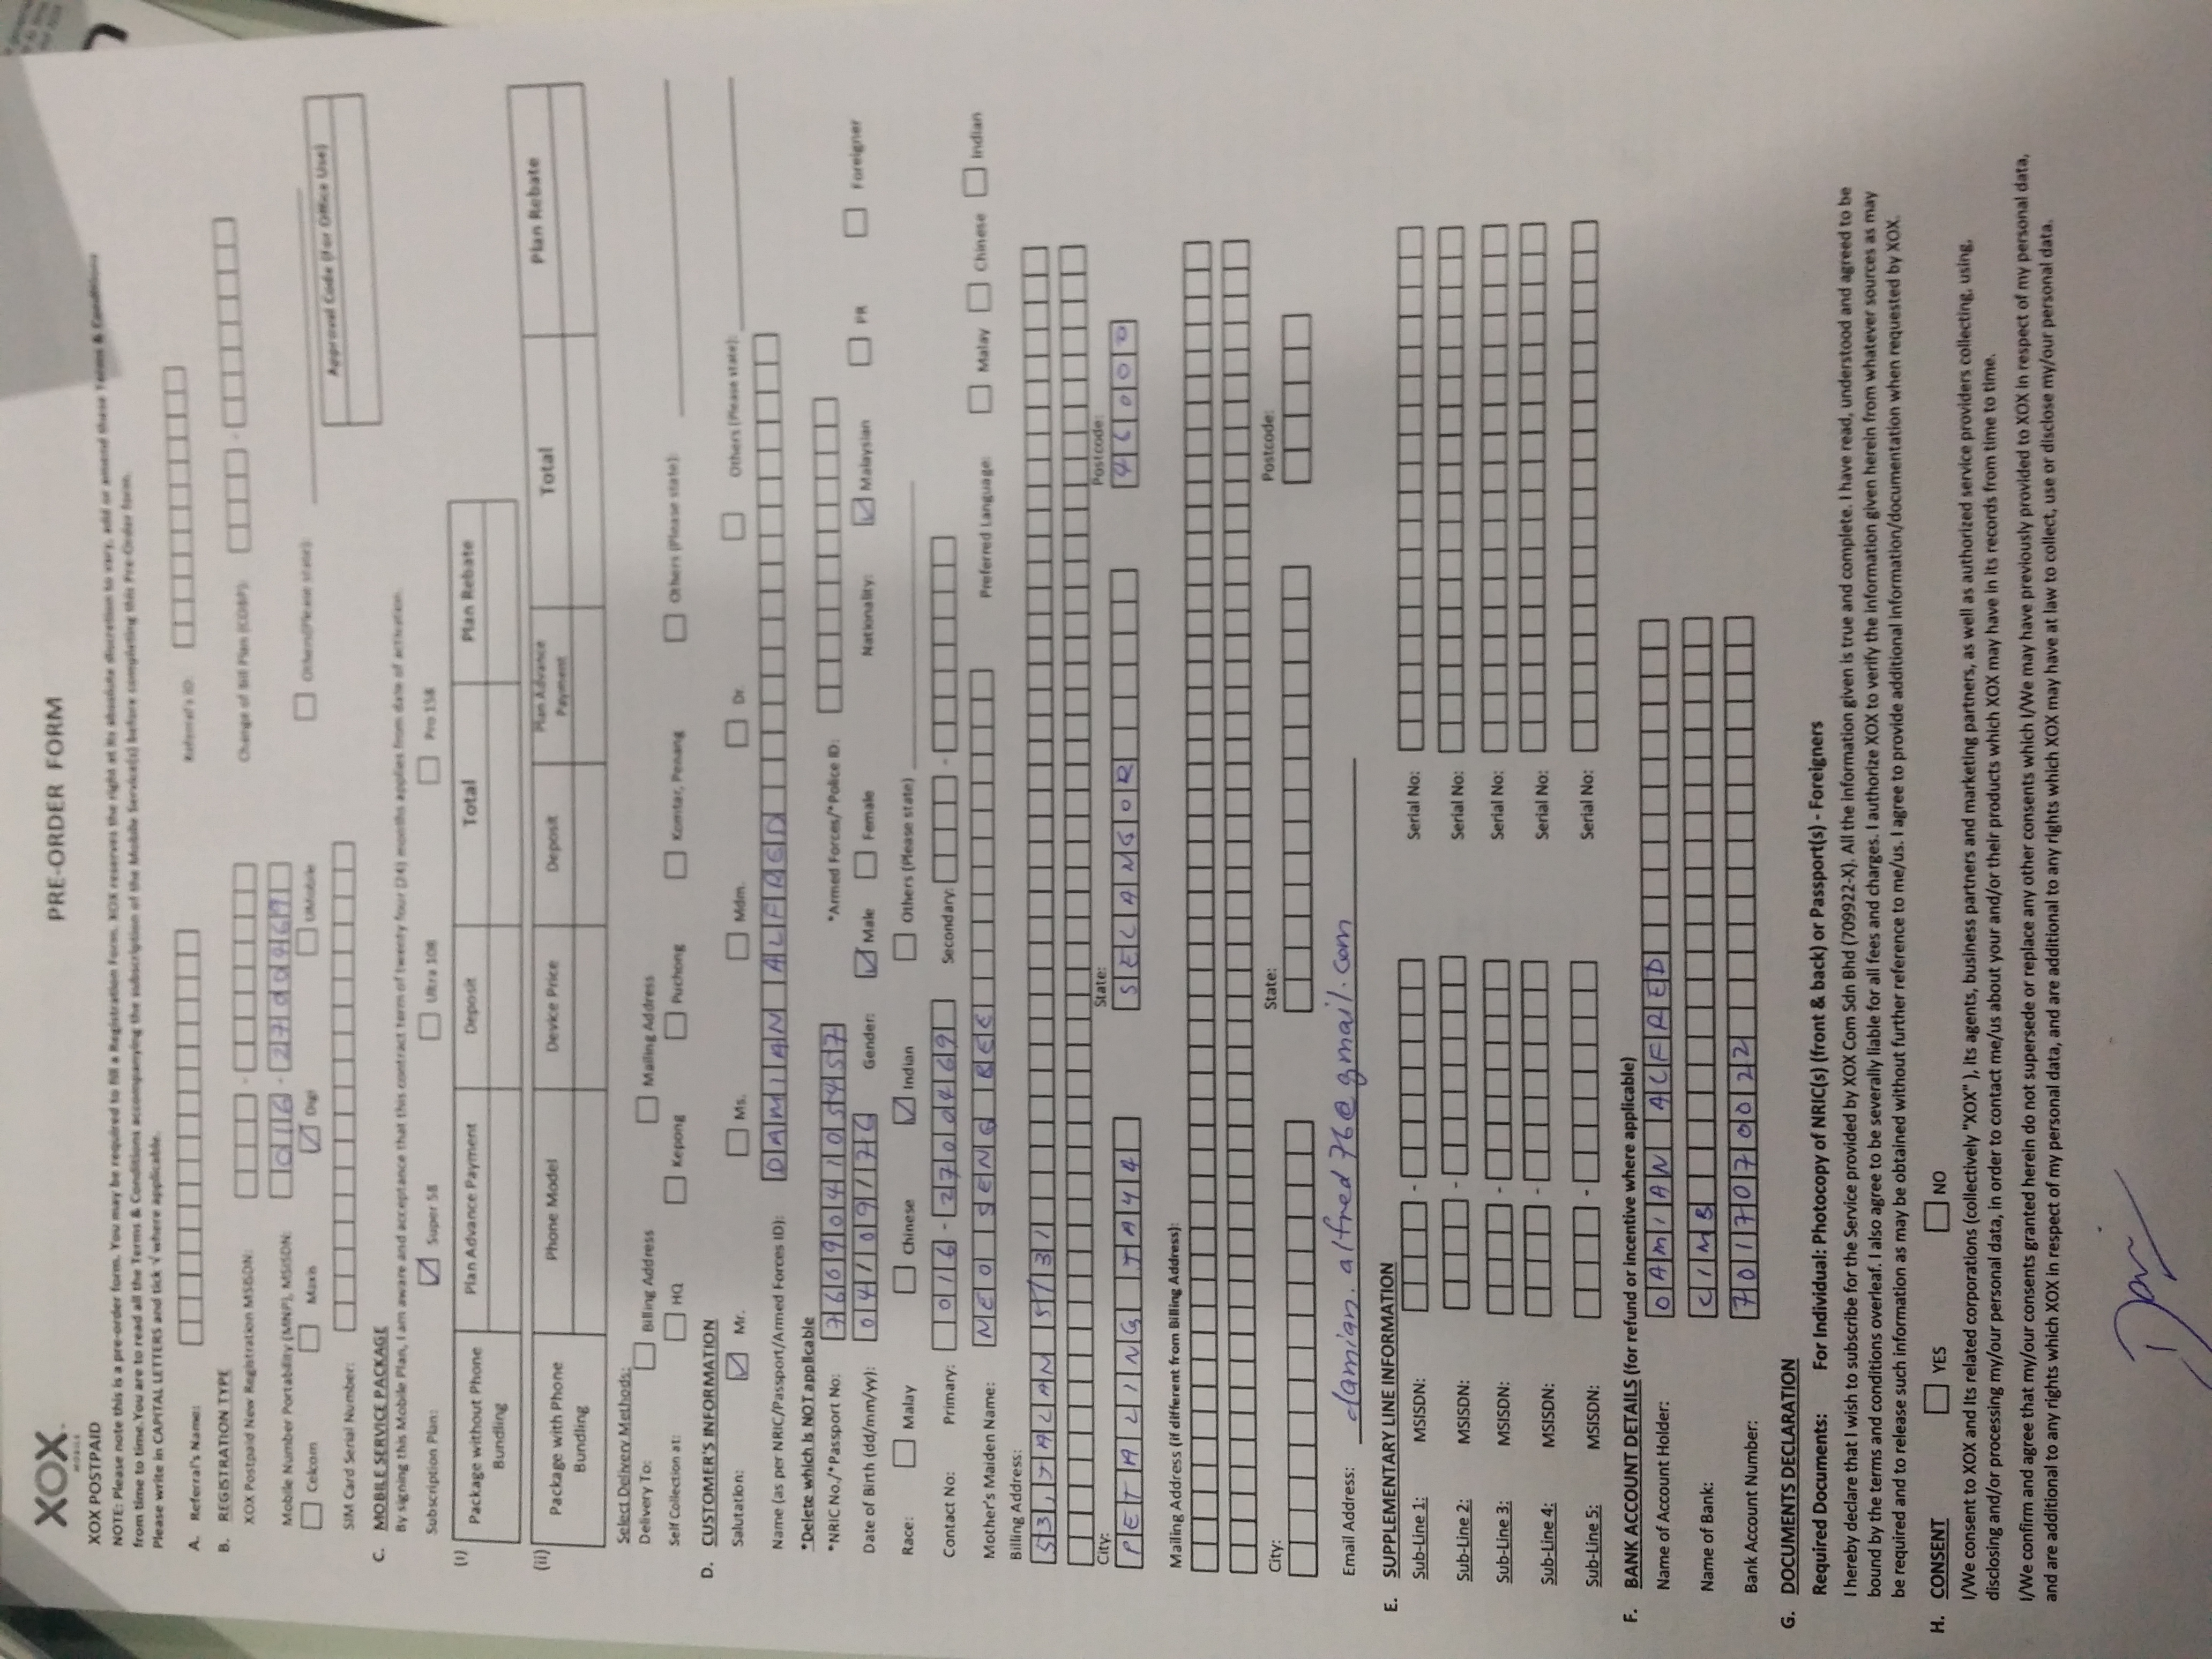 XOX.
MOBILE
PRE-ORDER FORM
XOX POSTPAID
NOTE: Please note this is a pre-order form. You may be required to fill a Registration Form. XOX reserves the right at its absolute discretion to vary, add or amend these Terms & Conditions
from time to time.You are to read all the Terms & Conditions accompanying the subscription of the Mobile Service(s) before completing this Pre-Order form.
Please write in CAPITAL LETTERS and tick √ where applicable.
A. Referral's Name: Referral's ID:
B. REGISTRATION TYPE
XOX Postpaid New Registration MSISDN: - Change of Bill Plan (COBP): -
Mobile Number Portability (MNP), MSISDN: 016 -
Celcom Maxis Digi UMobile Others(Please state):
SIM Card Serial Number: Approval Code (For Office Use)
C. MOBILE SERVICE PACKAGE
By signing this Mobile Plan, I am aware and acceptance that this contract term of twenty four (24) months applies from date of activation.
Subscription Plan: Super 58 Ultra 108 Pro 158
(i) Package without Phone Bundling Plan Advance Payment Deposit Total Plan Rebate
(ii) Package with Phone Bundling Phone Model Device Price Deposit Plan Advance Payment Total Plan Rebate
Select Delivery Methods:
Delivery To: Billing Address Mailing Address
Self Collection at: HQ Kepong Puchong Komtar, Penang Others (Please state):
D. CUSTOMER'S INFORMATION
Salutation: Mr. Ms. Mdm. Dr. Others (Please state):
Name (as per NRIC/Passport/Armed Forces ID): DAMIAN ALFRED
*Delete which is NOT applicable
*NRIC No./*Passport No: 760904105457 *Armed Forces/*Police ID:
Date of Birth (dd/mm/yy): 04/09/76 Gender: Male Female Nationality: Malaysian PR Foreigner
Race: Malay Chinese Indian Others (Please state)
Contact No: Primary: 016 - 2700469 Secondary: -
Mother's Maiden Name: NEO SENG BEE Preferred Language: Malay Chinese Indian
Billing Address:
53, JALAN 5/31
City: State: Postcode:
PETALING JAYA SELANGOR 46000
Mailing Address (if different from Billing Address):
City: State: Postcode:
Email Address: damian.alfred76@gmail.com
E. SUPPLEMENTARY LINE INFORMATION
Sub-Line 1: MSISDN: - Serial No:
Sub-Line 2: MSISDN: - Serial No:
Sub-Line 3: MSISDN: - Serial No:
Sub-Line 4: MSISDN: - Serial No:
Sub-Line 5: MSISDN: - Serial No:
F. BANK ACCOUNT DETAILS (for refund or incentive where applicable)
Name of Account Holder: DAMIAN ALFRED
Name of Bank: CIMB
Bank Account Number: 7017070022
G. DOCUMENTS DECLARATION
Required Documents: For Individual: Photocopy of NRIC(s) (front & back) or Passport(s) - Foreigners
I hereby declare that I wish to subscribe for the Service provided by XOX Com Sdn Bhd (709922-X). All the information given is true and complete. I have read, understood and agreed to be
bound by the terms and conditions overleaf. I also agree to be severally liable for all fees and charges. I authorize XOX to verify the information given herein from whatever sources as may
be required and to release such information as may be obtained without further reference to me/us. I agree to provide additional information/documentation when requested by XOX.
H. CONSENT YES NO
I/We consent to XOX and its related corporations (collectively "XOX" ), its agents, business partners and marketing partners, as well as authorized service providers collecting, using,
disclosing and/or processing my/our personal data, in order to contact me/us about your and/or their products which XOX may have in its records from time to time.
I/We confirm and agree that my/our consents granted herein do not supersede or replace any other consents which I/We may have previously provided to XOX in respect of my personal data,
and are additional to any rights which XOX in respect of my personal data, and are additional to any rights which XOX may have at law to collect, use or disclose my/our personal data.